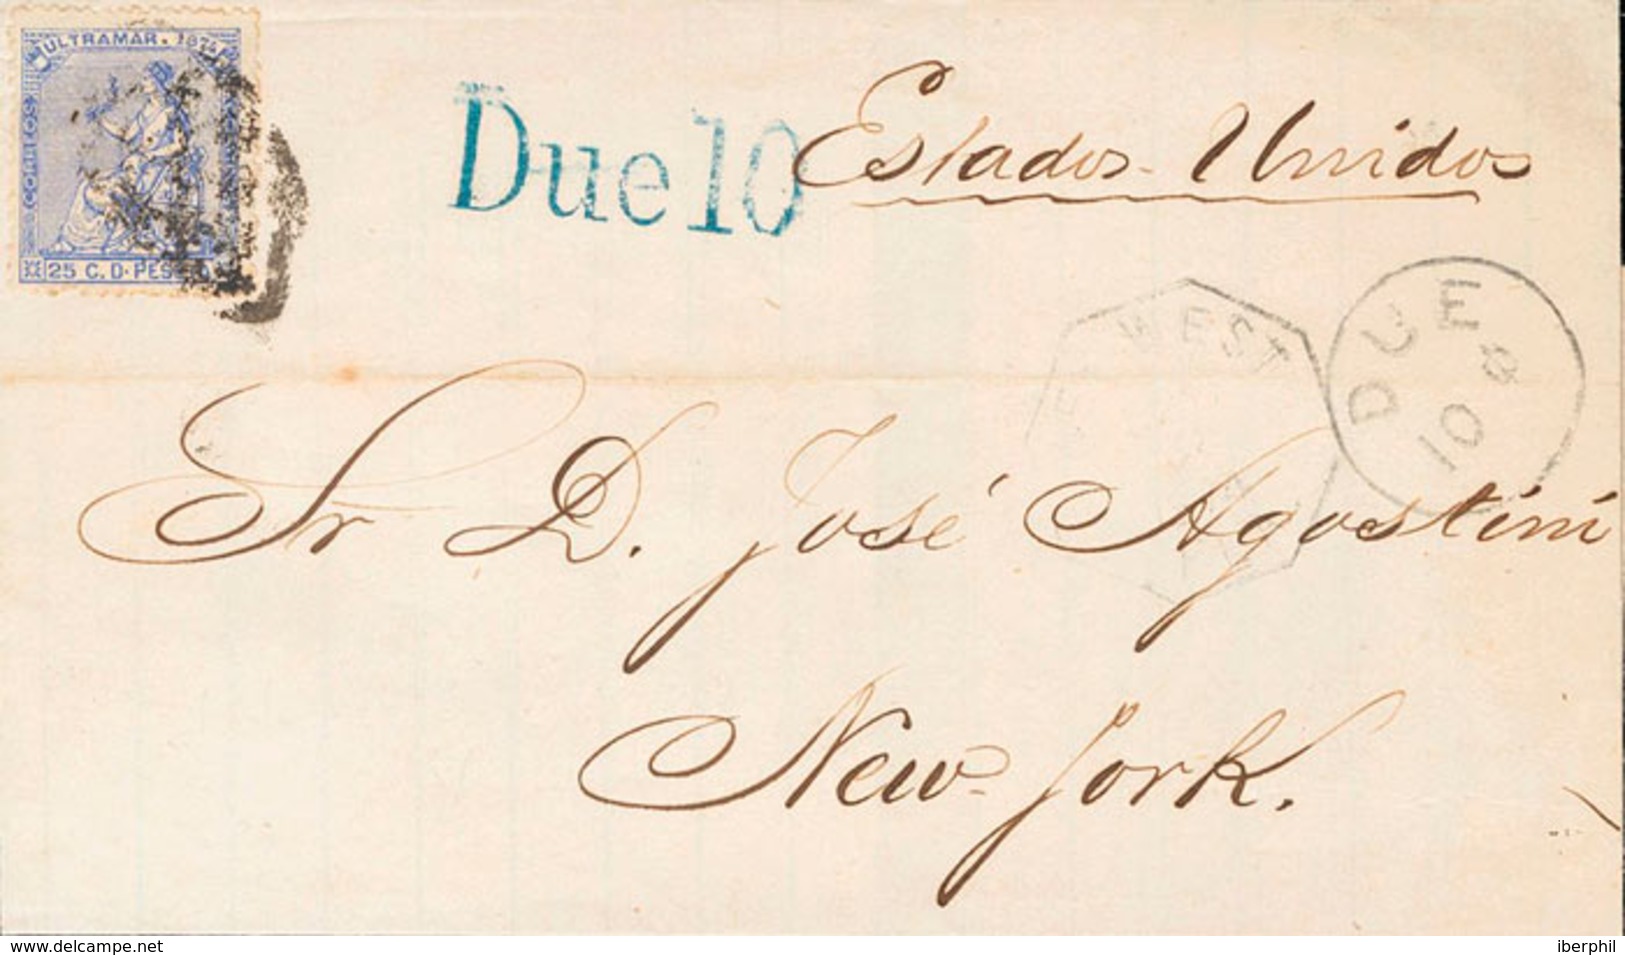 ULTRAMAR. 187
CORREOS
25 C. D. PES
Due 10
Estados-Unidos
WEST
DUE
10
Sr D. José Agostini
New-York.
www.delcampe.net
iberphil